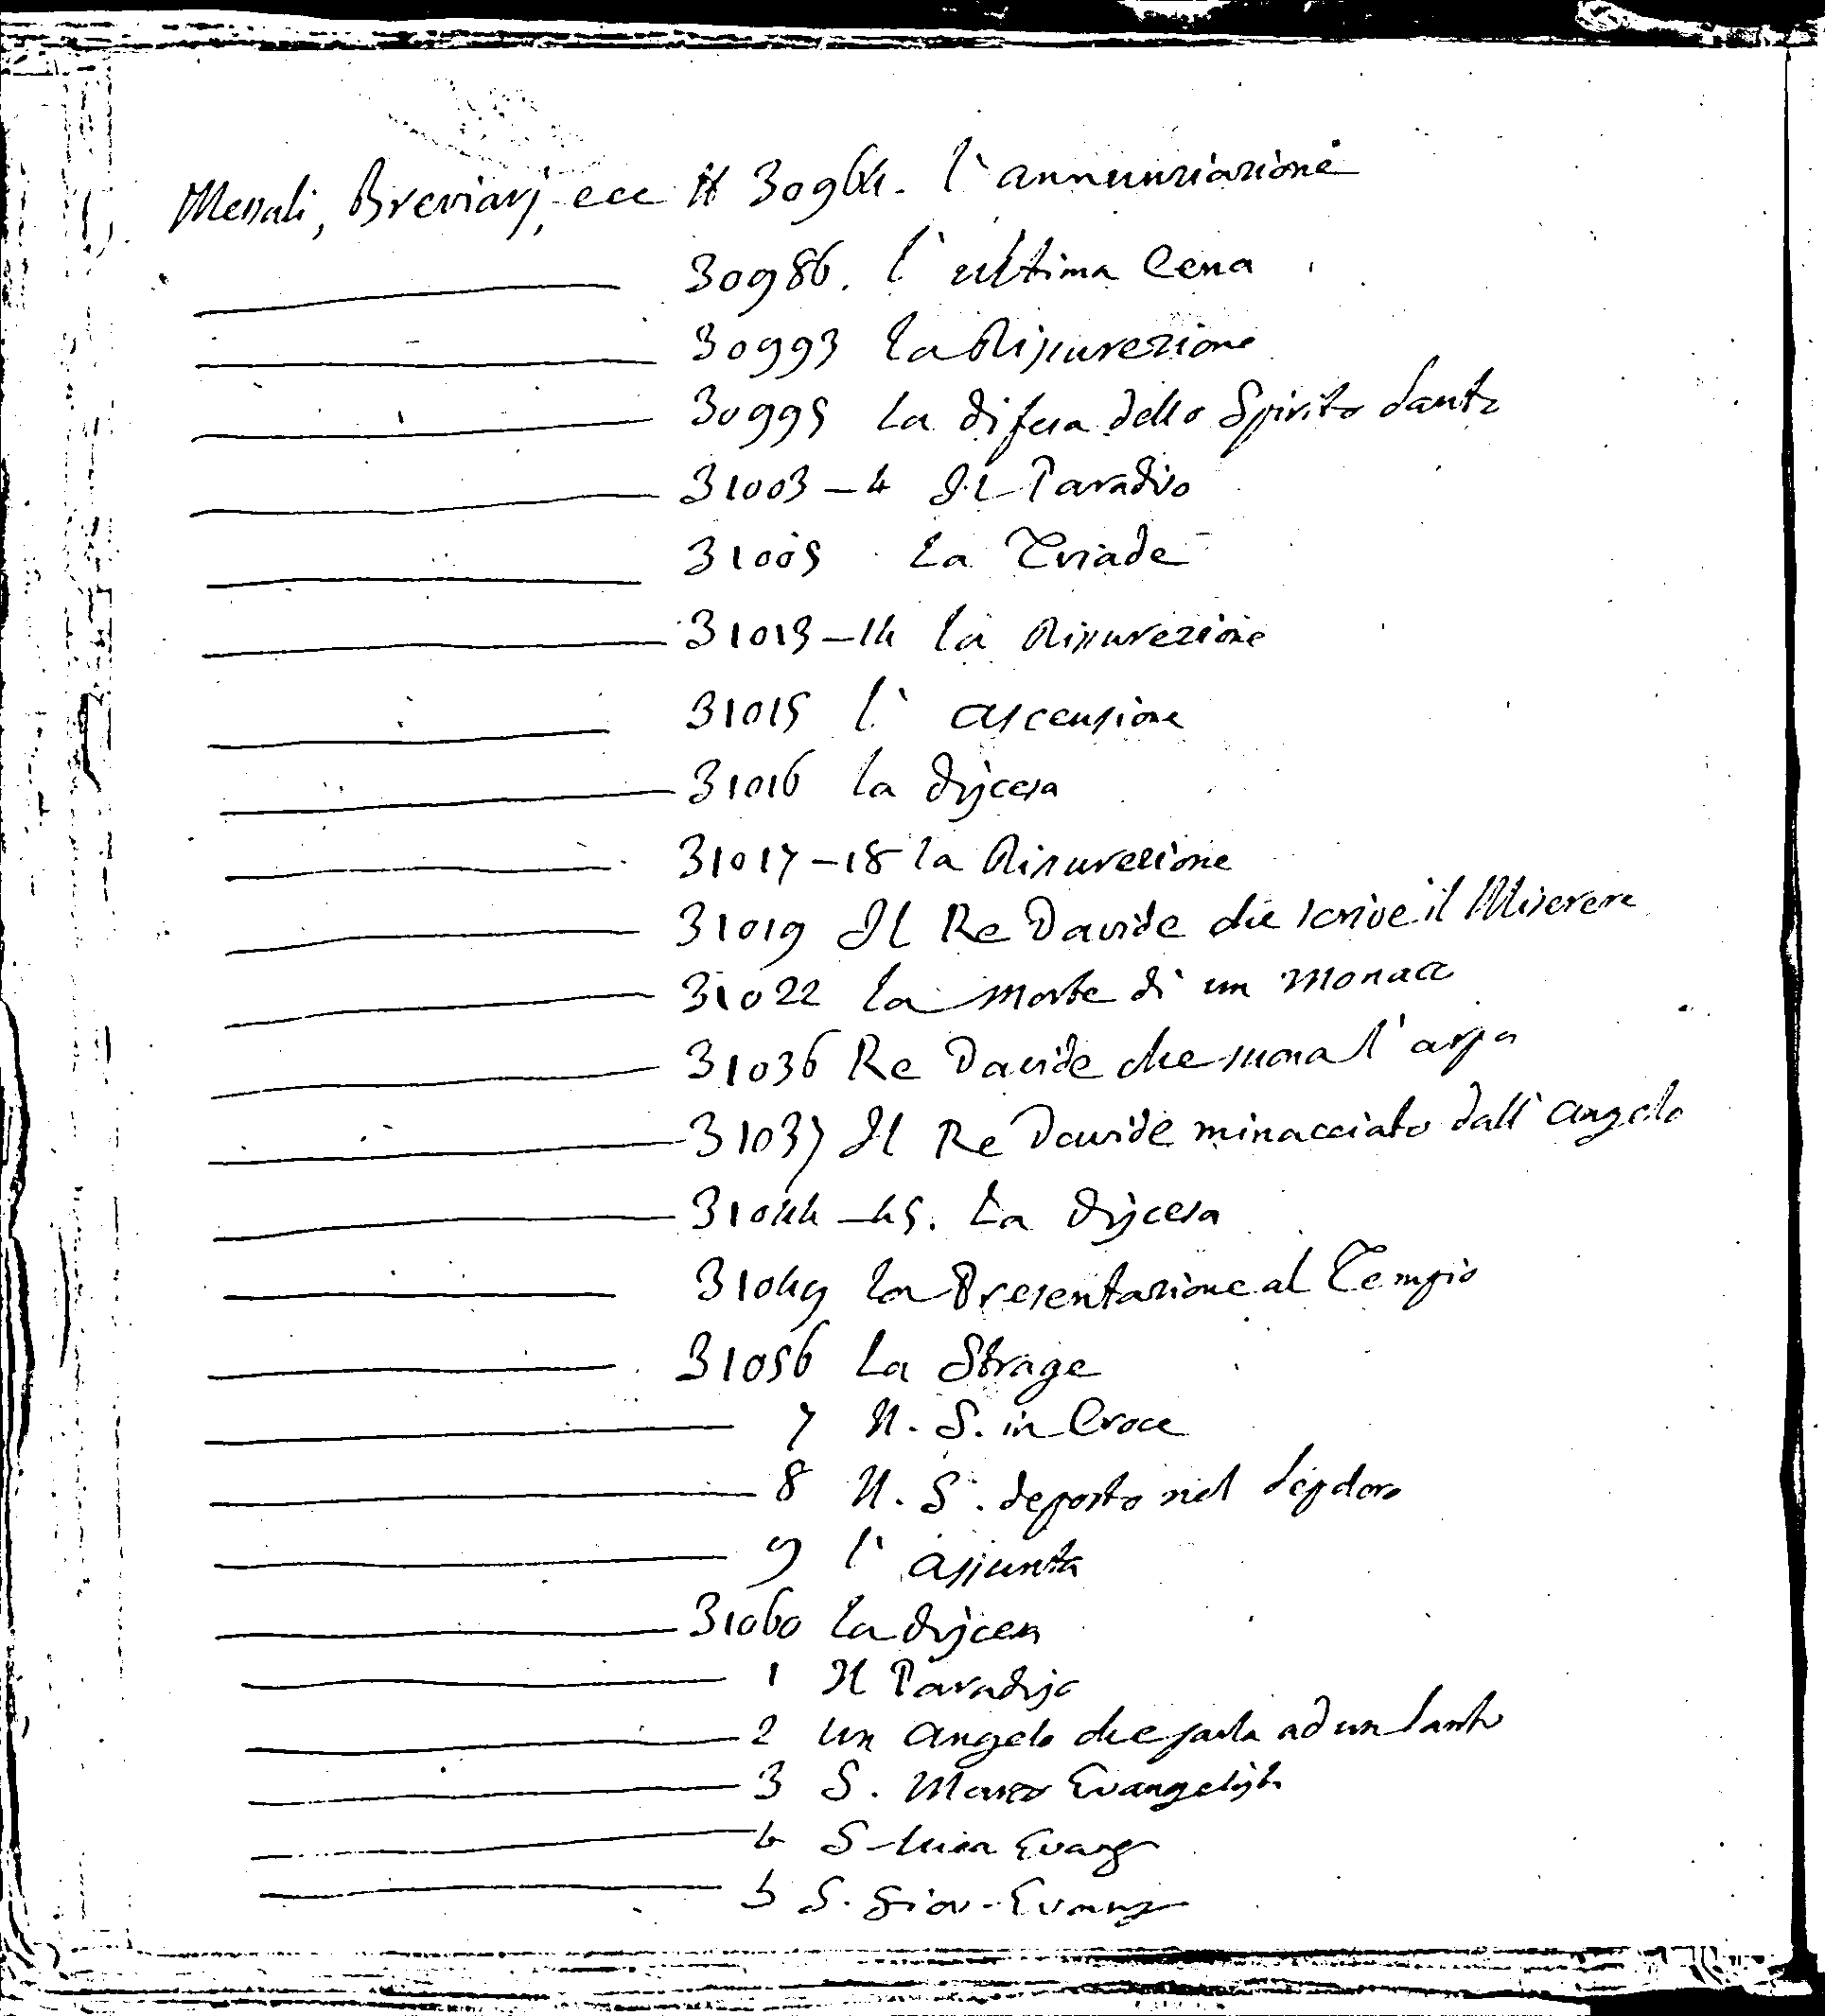 Messali, Breviarj, ecc # 30964. l'annunziazione
30986. l'ultima Cena
30993 la Risurezione
30995 La discesa dello Spirito Santo
31003-4 Il Paradiso
31005 La Triade
31013-14 la Risurezione
31015 l'ascensione
31016 la discesa
31017-18 la Risurezione
31019 Il Re Davide che scrive il Miserere
31022 la morte di un monaco
31036 Re Davide che suona l'arpa
31037 Il Re Davide minacciato dall'angelo
31044-45. La discesa
31049 la Presentazione al Tempio
31056 La Strage
7 N. S. in Croce
8 N. S. deposto nel Sepolcro
9 l'assunta
31060 la discesa
1 Il Paradiso
2 Un angelo che parla ad un Santo
3 S. Marco Evangelista
4 S. Luca Evang
5 S. Giov. Evang